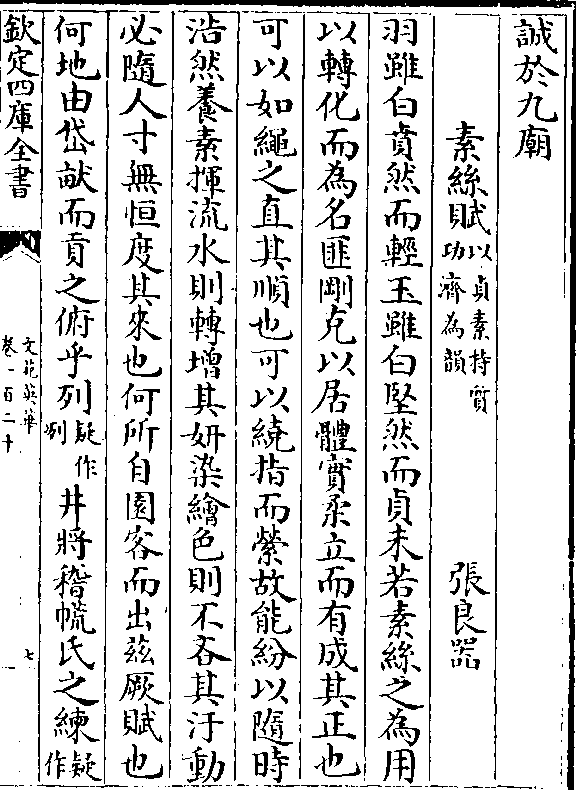 誠於九廟
素絲賦以貞素持質功濟為韻 張良器
羽雖白賁然而輕玉雖白堅然而貞未若素絲之為用
以轉化而為名匪剛克以居體實柔立而有成其正也
可以如繩之直其順也可以繞指而縈故能紛以隨時
浩然養素揮流水則轉增其妍染繪色則不吝其汙動
必隨人寸無恒度其來也何所自園客而出茲厥賦也
何地由岱畎而貢之俯乎列疑作冽井將稽㡆氏之練疑作
欽定四庫全書
文苑英華
卷一百二十
七